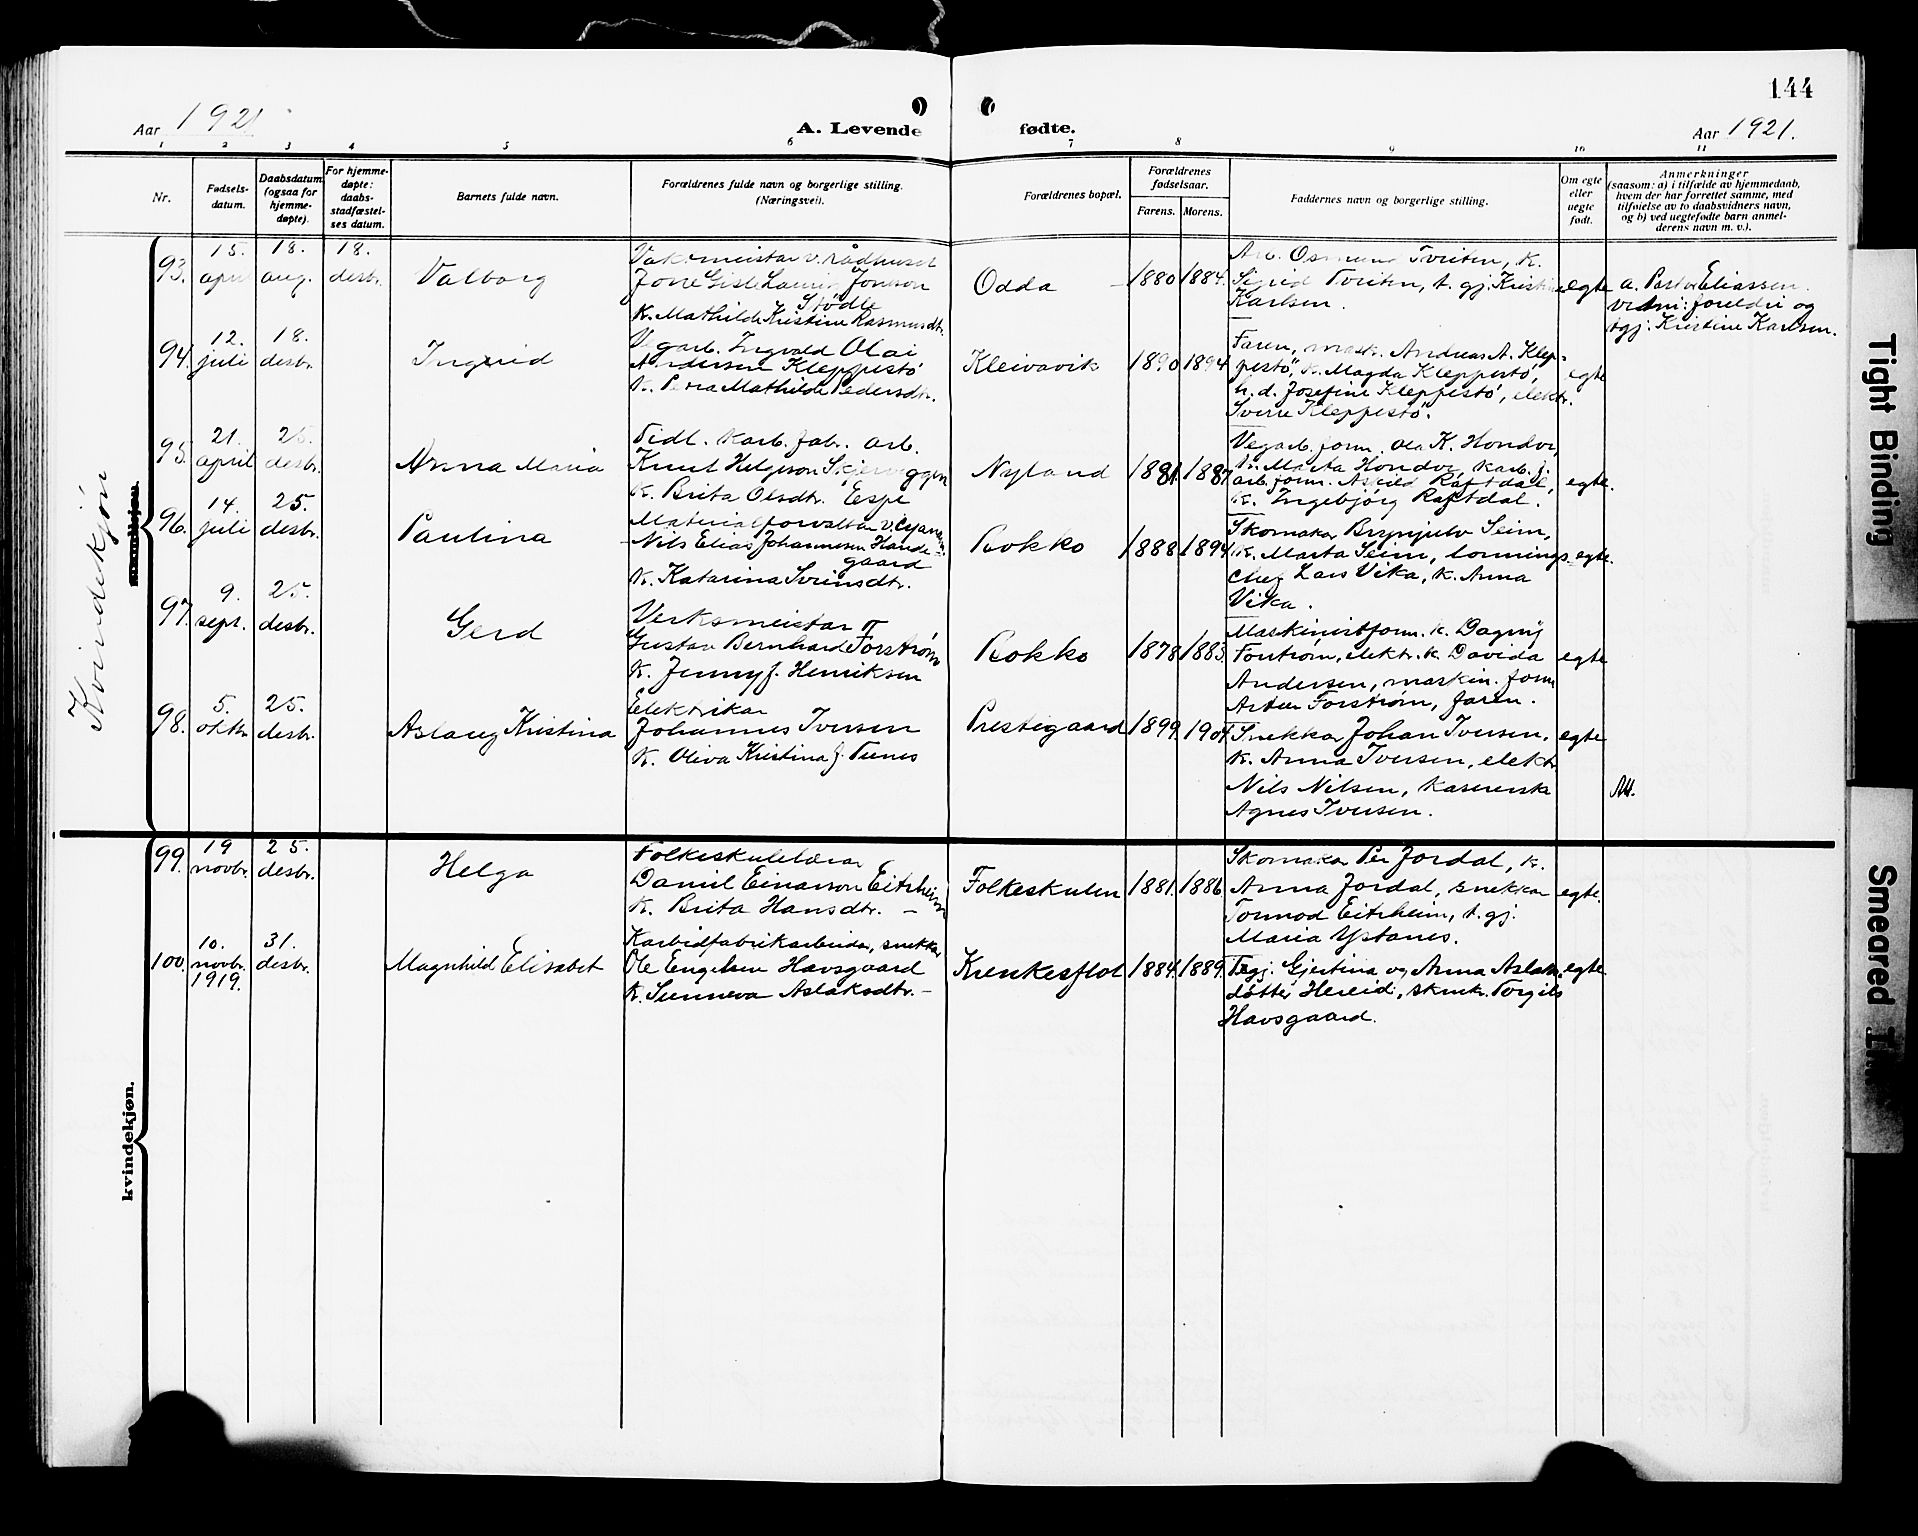 144
Aar 1921
A. Levende fødte.
Aar 1921.
1 2 3 4 5 6 7 8 9 10 11
Nr.
Fødsels-
datum.
Daabsdatum
(ogsaa for
hjemme-
døpte).
For hjemme-
døpte:
daabs-
stadfæstel-
ses datum.
Barnets fulde navn.
Forældrenes fulde navn og borgerlige stilling.
(Næringsvei).
Forældrenes bopæl.
Forældrenes
fødselsaar.
Farens. Morens.
Faddernes navn og borgerlige stilling.
Om egte
eller
uegte
født.
Anmerkninger
(saasom: a) i tilfælde av hjemmedaab,
hvem der har forrettet samme, med
tilføielse av to daabsvidners navn,
og b) ved uegtefødte barn anmel-
derens navn m. v.).
Kvindekjøn
93.
15.
april
18.
aug.
18.
desbr.
Valborg
Vaktmeistar v. rådhuset
Jone Gisle Jonson
Stødle
k. Mathilde Kristine Rasmusdtr.
Odda
1880 1884.
Arb. Osmund Tveiten, k.
Sigrid Tveiten, t. gj. Kristine
Karlsen.
egte
a. Pastor Eliassen.
vitni: foreldri og
tgj. Kristine Karlsen.
94.
12.
juli
18.
desbr.
Ingrid
Vegarb. Ingvald Olai
Andersen Kleppestø
k. Petra Mathilde Pedersdtr.
Kleivavik
1890 1894
Faren, mask. Andreas A. Klep-
pestø, k. Magda Kleppestø,
h. d. Josefine Kleppestø, elektr.
Sverre Kleppestø.
egte
95.
21.
april
25.
desbr.
Anna Maria
Tidl. karb. fab. arb.
Knut Helgeson Skjerveggen
k. Brita Olsdtr. Espe
Nyland
1881. 1887
Vegarb. form. Ola K. Hondve,
k. Marta Hondve, karb. f.
arb. form. Askild Raftdal,
k. Ingebjørg Raftdal.
egte.
96.
14.
juli
25.
desbr.
Paulina
Materialforvaltar v.
Nils Elias Johannesen Hande-
gaard
k. Katarina Sveinsdtr.
Rokko
1888. 1894
Skomakar Brynjulv Seim,
k. Marta Seim, lonnings
chef Lars Vika, k. Anna
Vika.
egte.
97.
9.
sept.
25.
desbr.
Gerd
Verksmeistar
Gustav Bernhard Forstrøm
k. Jenny f. Henriksen
Rokko
1878 1883.
Maskinistform. k. Dagny
Forstrøm, elektr. k. Davida
Andersen, maskin. form
Artur Forstrøm, faren.
egte
98.
5.
oktbr
25.
desbr.
Aslaug Kristina
Elektrikar
Johannes Iversen
k. Oliva Kristina f. Tunes
Prestegaard
1899 1904
Snekkar Johan Iversen,
k. Anna Iversen, elektr.
Nils Nilsen,
Agnes Iversen.
egte
99.
19
novbr.
25.
desbr.
Helga
Folkeskulelærar
Daniel Einarson Eitrheim
k. Brita Hansdtr. –
Folkeskulen
1881. 1886
Skomakar Per Jordal, k.
Anna Jordal, snekkar
Tormod Eitrheim, t. gj.
Maria Ystanes.
egte.
kvindekjøn.
100.
10.
novbr.
1919.
31.
desbr.
Magnhild Elisabet
Karbidfabrikarbeidar, snekkar
Ole Engelsen Havsgaard
k. Sunneva Aslaksdtr. –
Krenkesflot
1884. 1889.
Tgj. Gjertina og Anna Aslaks-
døtter Hereid, snikk. Torgils
Havsgaard.
egte
Tight Binding
Smeared